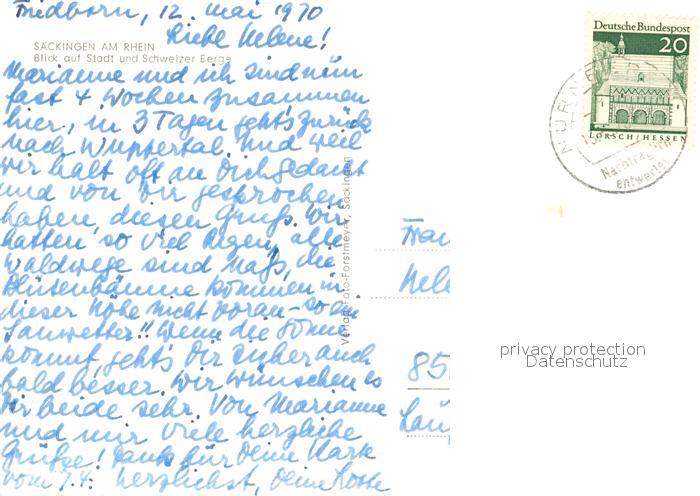 Friedborn, 12. Mai 1970
Liebe Helene!
SÄCKINGEN AM RHEIN
Blick auf Stadt und Schweizer Berge
Marianne und ich sind nun
fast 4 Wochen zusammen
hier, in 3 Tagen geht's zurück
nach Wuppertal. Und weil
wir halt oft an Dich gedacht
und von Dir gesprochen
haben, diesen Gruß. Wir
hatten so viel Regen, alle
Waldwege sind naß, die
Blütenbäume kommen in
dieser Höhe nicht voran - so ein
Sauwetter!! Wenn die Sonne
kommt, geht's Dir sicher auch
bald besser. Wir wünschen es
Dir beide sehr. Von Marianne
und mir viele herzliche
Grüße! Dank für Deine Karte
vom 7.4. Herzlichst, Deine Lotte
Verlag Foto-Forstmeyer, Säckingen
Deutsche Bundespost
20
LORSCH/HESSEN
Nachträglich
entwertet
Frau
Hele
85
Lau
privacy protection
Datenschutz